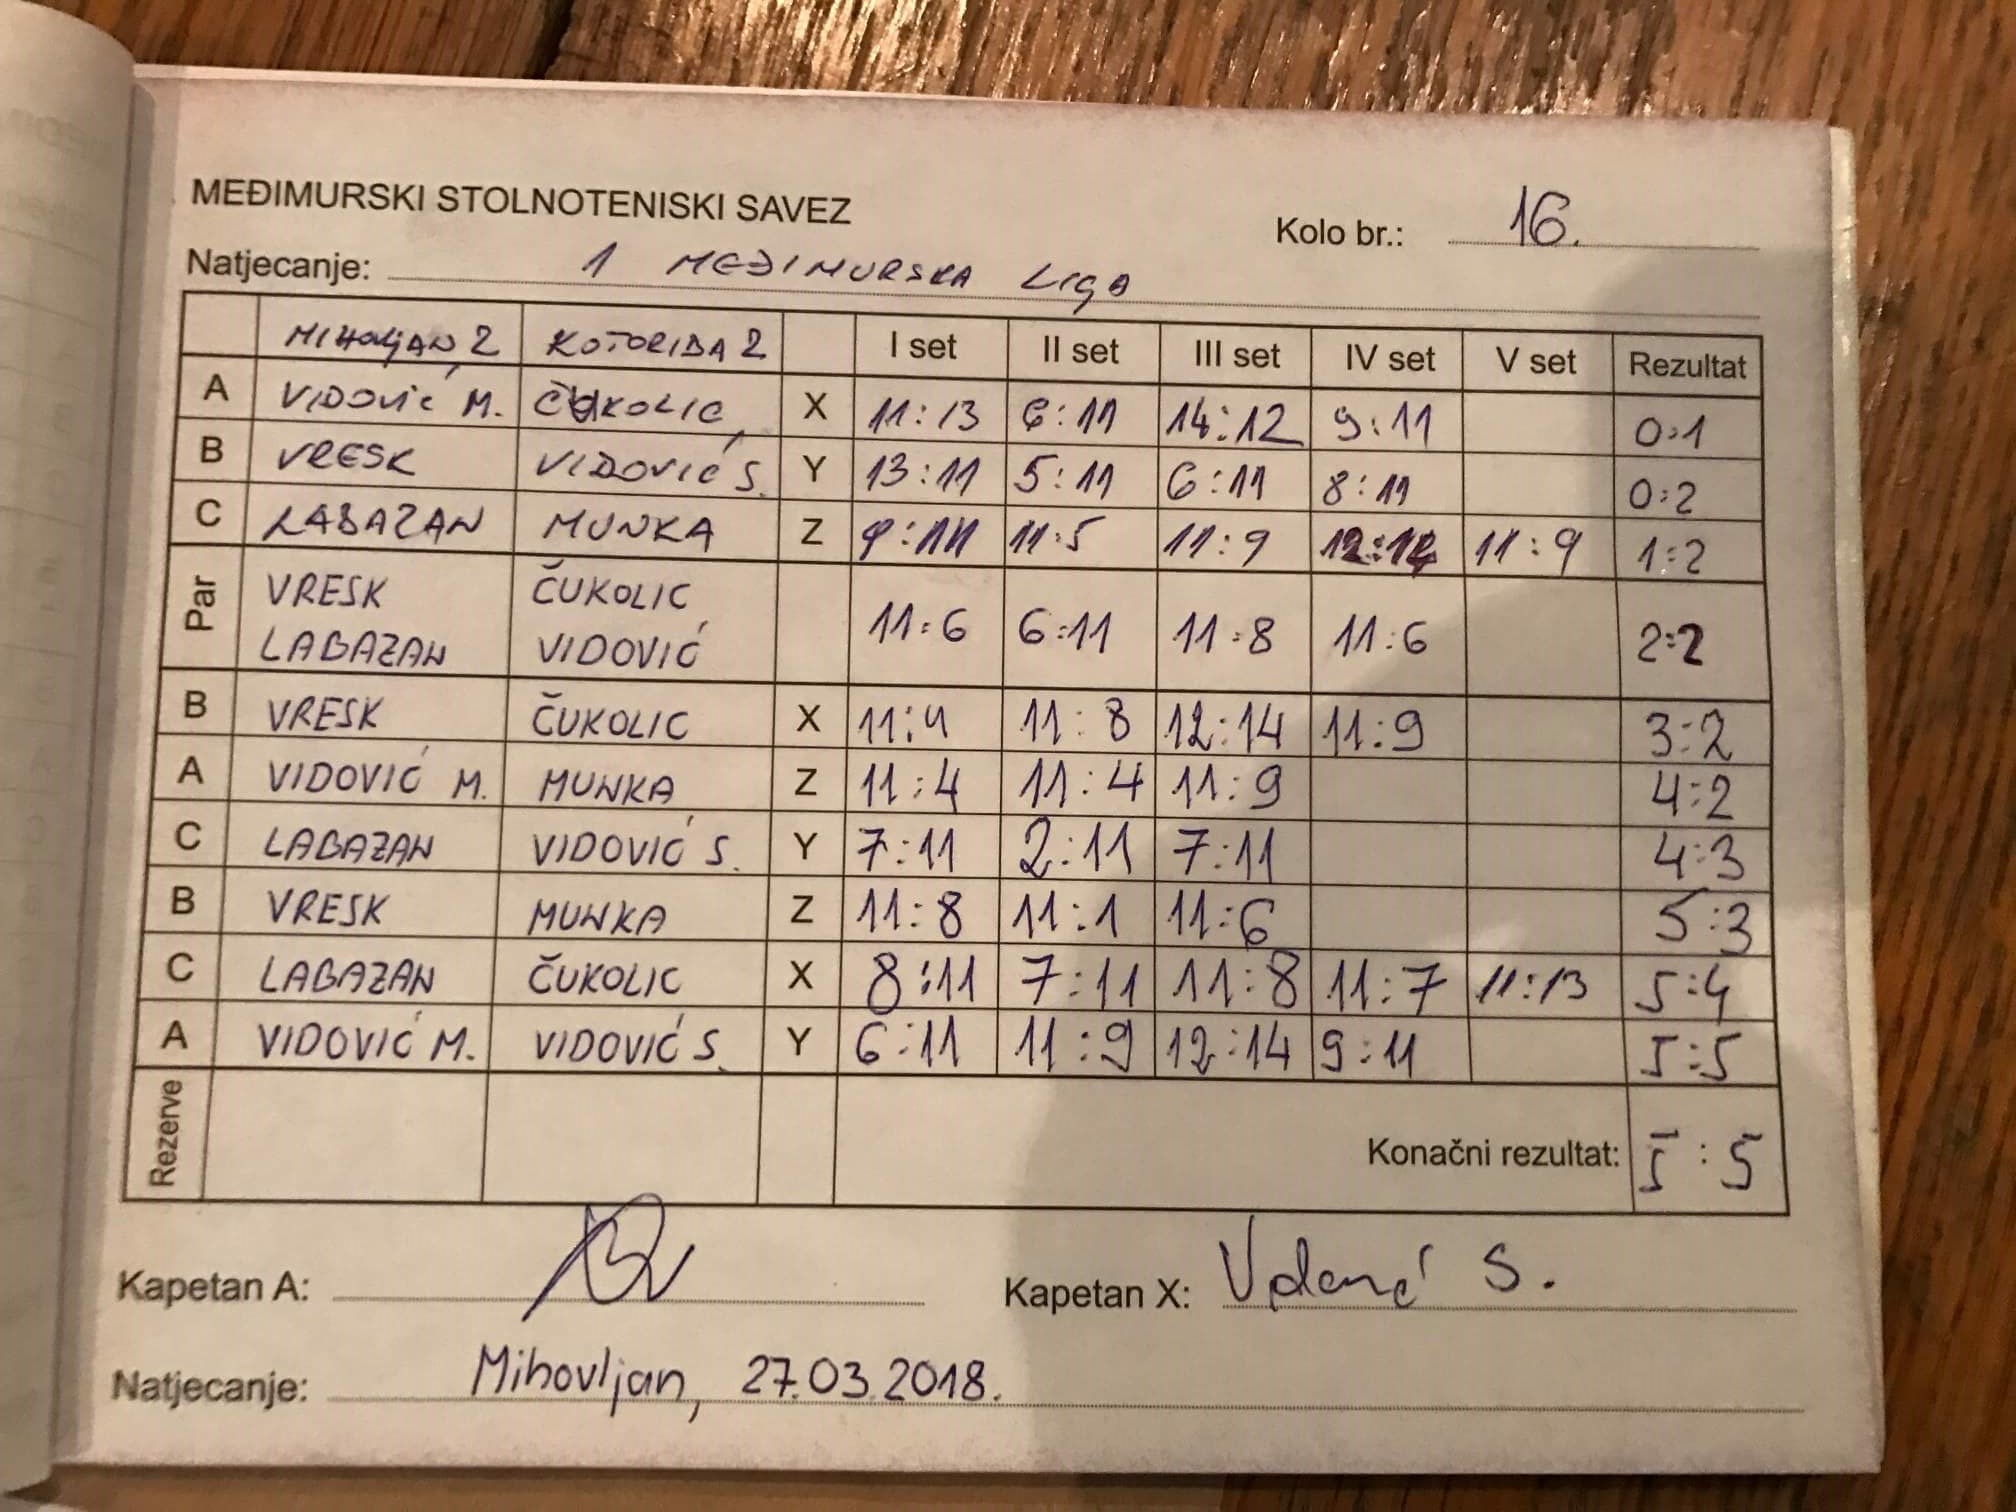 MEĐIMURSKI STOLNOTENISKI SAVEZ
Kolo br.: 16.
Natjecanje: 1 MEĐIMURSKA LIGA
MIHOVLJAN 2 KOTORIBA 2 I set II set III set IV set V set Rezultat
A VIDOVIĆ M. ČUKOLIC X 11:13 6:11 14:12 9:11 0:1
B VRESK VIDOVIĆ S. Y 13:11 5:11 6:11 8:11 0:2
C LABAZAN MUNKA Z 9:11 11:5 11:9 12:14 11:9 1:2
Par VRESK ČUKOLIC 11:6 6:11 11:8 11:6 2:2
LABAZAN VIDOVIĆ
B VRESK ČUKOLIC X 11:4 11:8 12:14 11:9 3:2
A VIDOVIĆ M. MUNKA Z 11:4 11:4 11:9 4:2
C LABAZAN VIDOVIĆ S. Y 7:11 2:11 7:11 4:3
B VRESK MUNKA Z 11:8 11:1 11:6 5:3
C LABAZAN ČUKOLIC X 8:11 7:11 11:8 11:7 11:13 5:4
A VIDOVIĆ M. VIDOVIĆ S. Y 6:11 11:9 12:14 9:11 5:5
Rezerve Konačni rezultat: 5:5
Kapetan A: Kapetan X: Vidović S.
Natjecanje: Mihovljan, 27.03.2018.